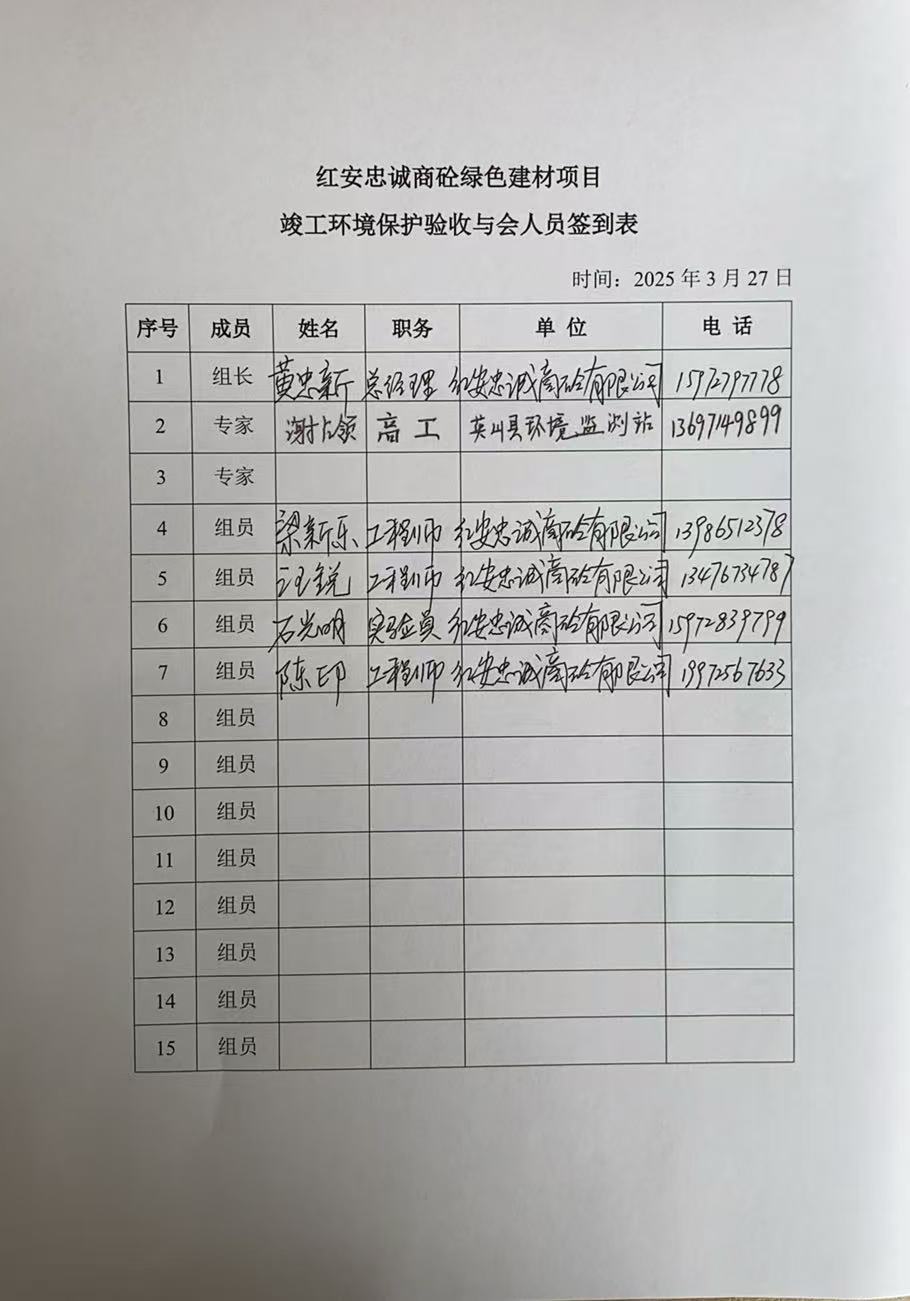 红安忠诚商砼绿色建材项目
竣工环境保护验收与会人员签到表
时间：2025 年 3 月 27 日
序号 成员 姓名 职务 单 位 电 话
1 组长 黄忠新 总经理 红安忠诚商砼有限公司 15972797778
2 专家 谢占领 高工 英山县环境监测站 13697149899
3 专家
4 组员 梁新乐 工程师 红安忠诚商砼有限公司 13986512378
5 组员 汪锐 工程师 红安忠诚商砼有限公司 13476734787
6 组员 石光明 实验员 红安忠诚商砼有限公司 15972839799
7 组员 陈印 工程师 红安忠诚商砼有限公司 19972567633
8 组员
9 组员
10 组员
11 组员
12 组员
13 组员
14 组员
15 组员